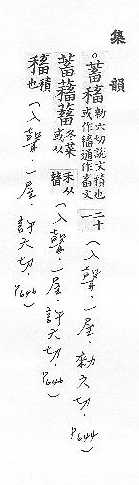 集韻
。蓄稸 勑六切說文積也或作稸通作畜文二十(入聲.一屋.勑六切.P644)
蓄蕏蓄 冬菜或从禾从畜(入聲.一屋.許六切.P646)
稸 積也(入聲.一屋.許六切.P646)